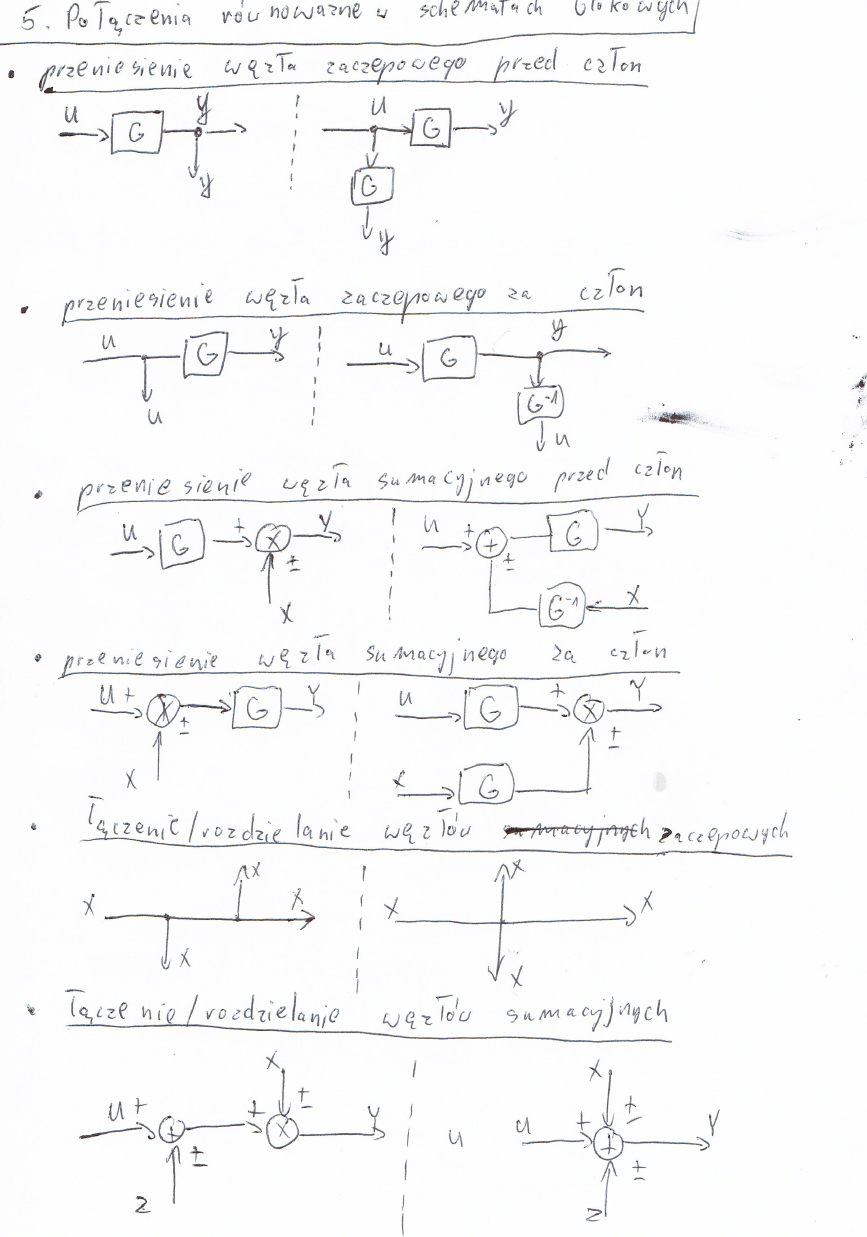 5. Połączenia równoważne w schematach blokowych
• przeniesienie węzła zaczepowego przed człon
u G y y
u G y
G
y
• przeniesienie węzła zaczepowego za człon
u G y u
u G y
G⁻¹
u
• przeniesienie węzła sumacyjnego przed człon
u G + ± Y
X
u + ± G Y
G⁻¹ X
• przeniesienie węzła sumacyjnego za człon
u + ± G Y
X
u G + ± Y
x G
• łączenie/rozdzielanie węzłów sumacyjnych zaczepowych
X X X X
X X X X
• łączenie/rozdzielanie węzłów sumacyjnych
X ±
u + ± + Y
z
u
X ±
u + ± Y
z